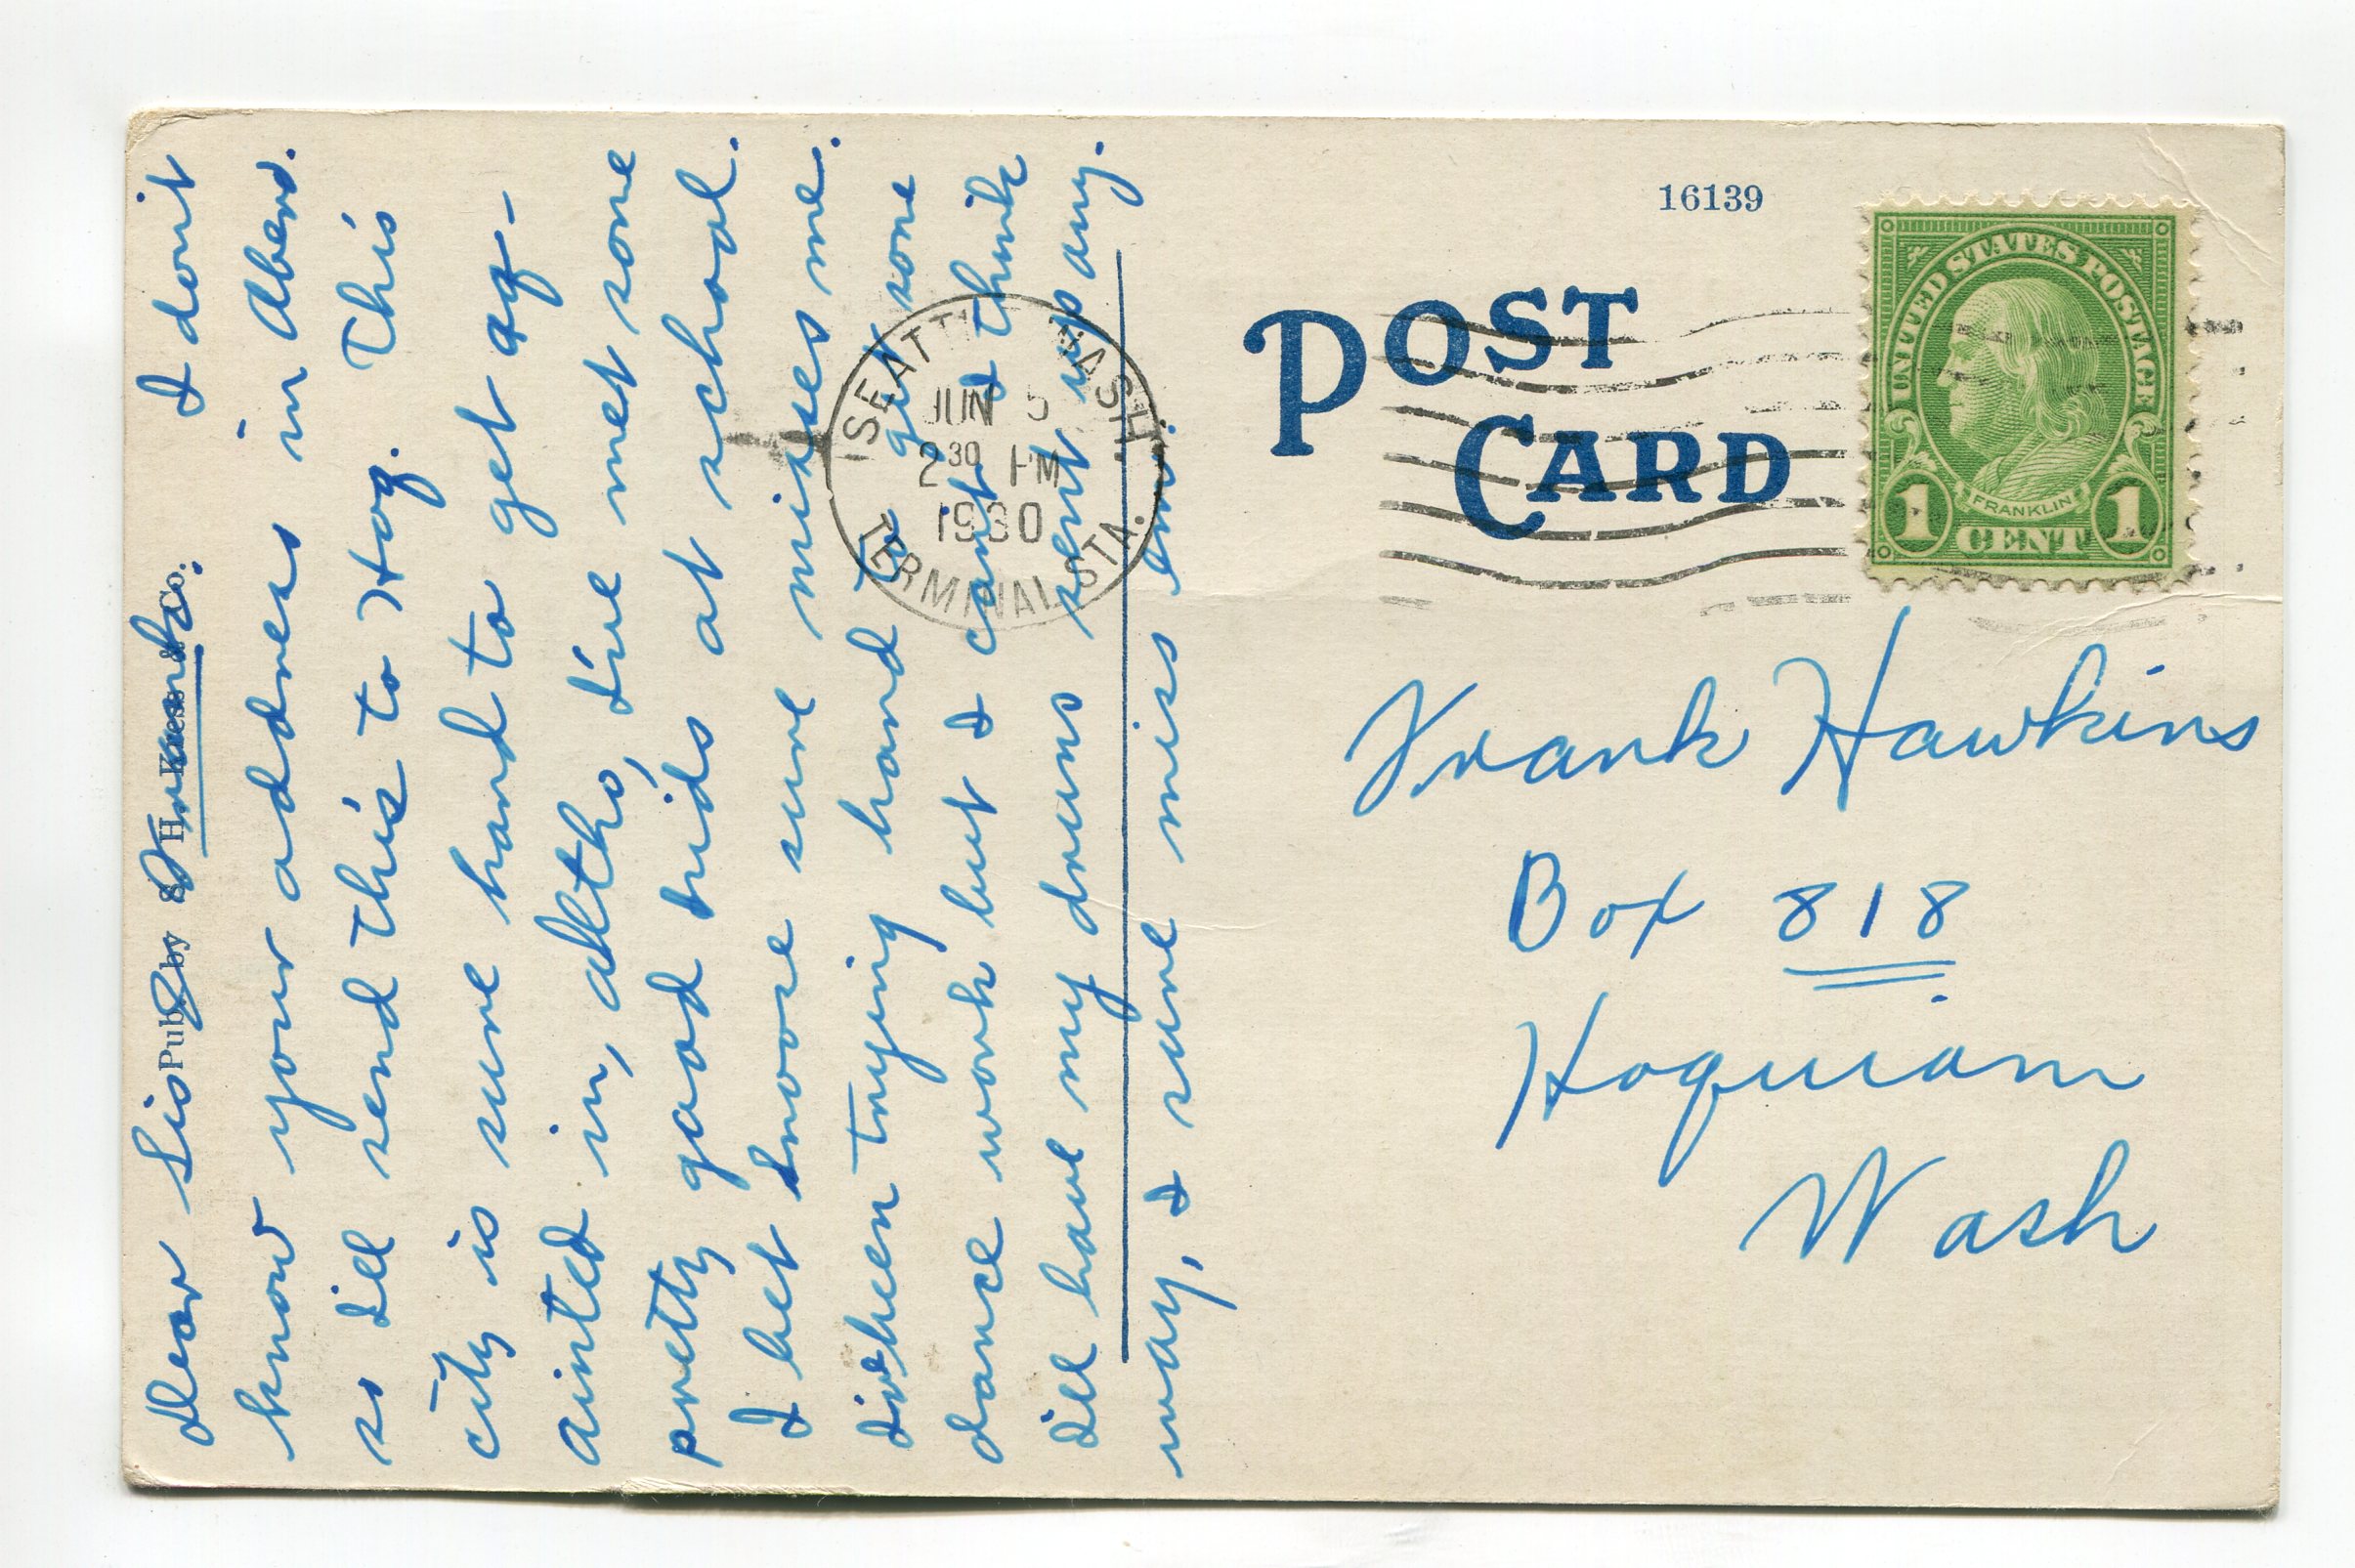 Dear Sis & Frank: I don't
know your address in Aberd.
so I'll send this to Hoq. This
city is sure hard to get aq-
ainted in, altho, I've met some
pretty good kids at school.
I bet Snoose sure misses me.
I've been trying hard to get some
dance work but I can't. I think
I'll have my drums sent up any.
way, I sure miss 'em.
Pub. by S. H. Kress & Co.
16139
POST
CARD
SEATTLE WASH.
JUN 5
2 30 PM
1930
TERMINAL STA.
UNITED STATES POSTAGE
FRANKLIN
1 CENT 1
Frank Hawkins
Box 818
Hoquiam
Wash